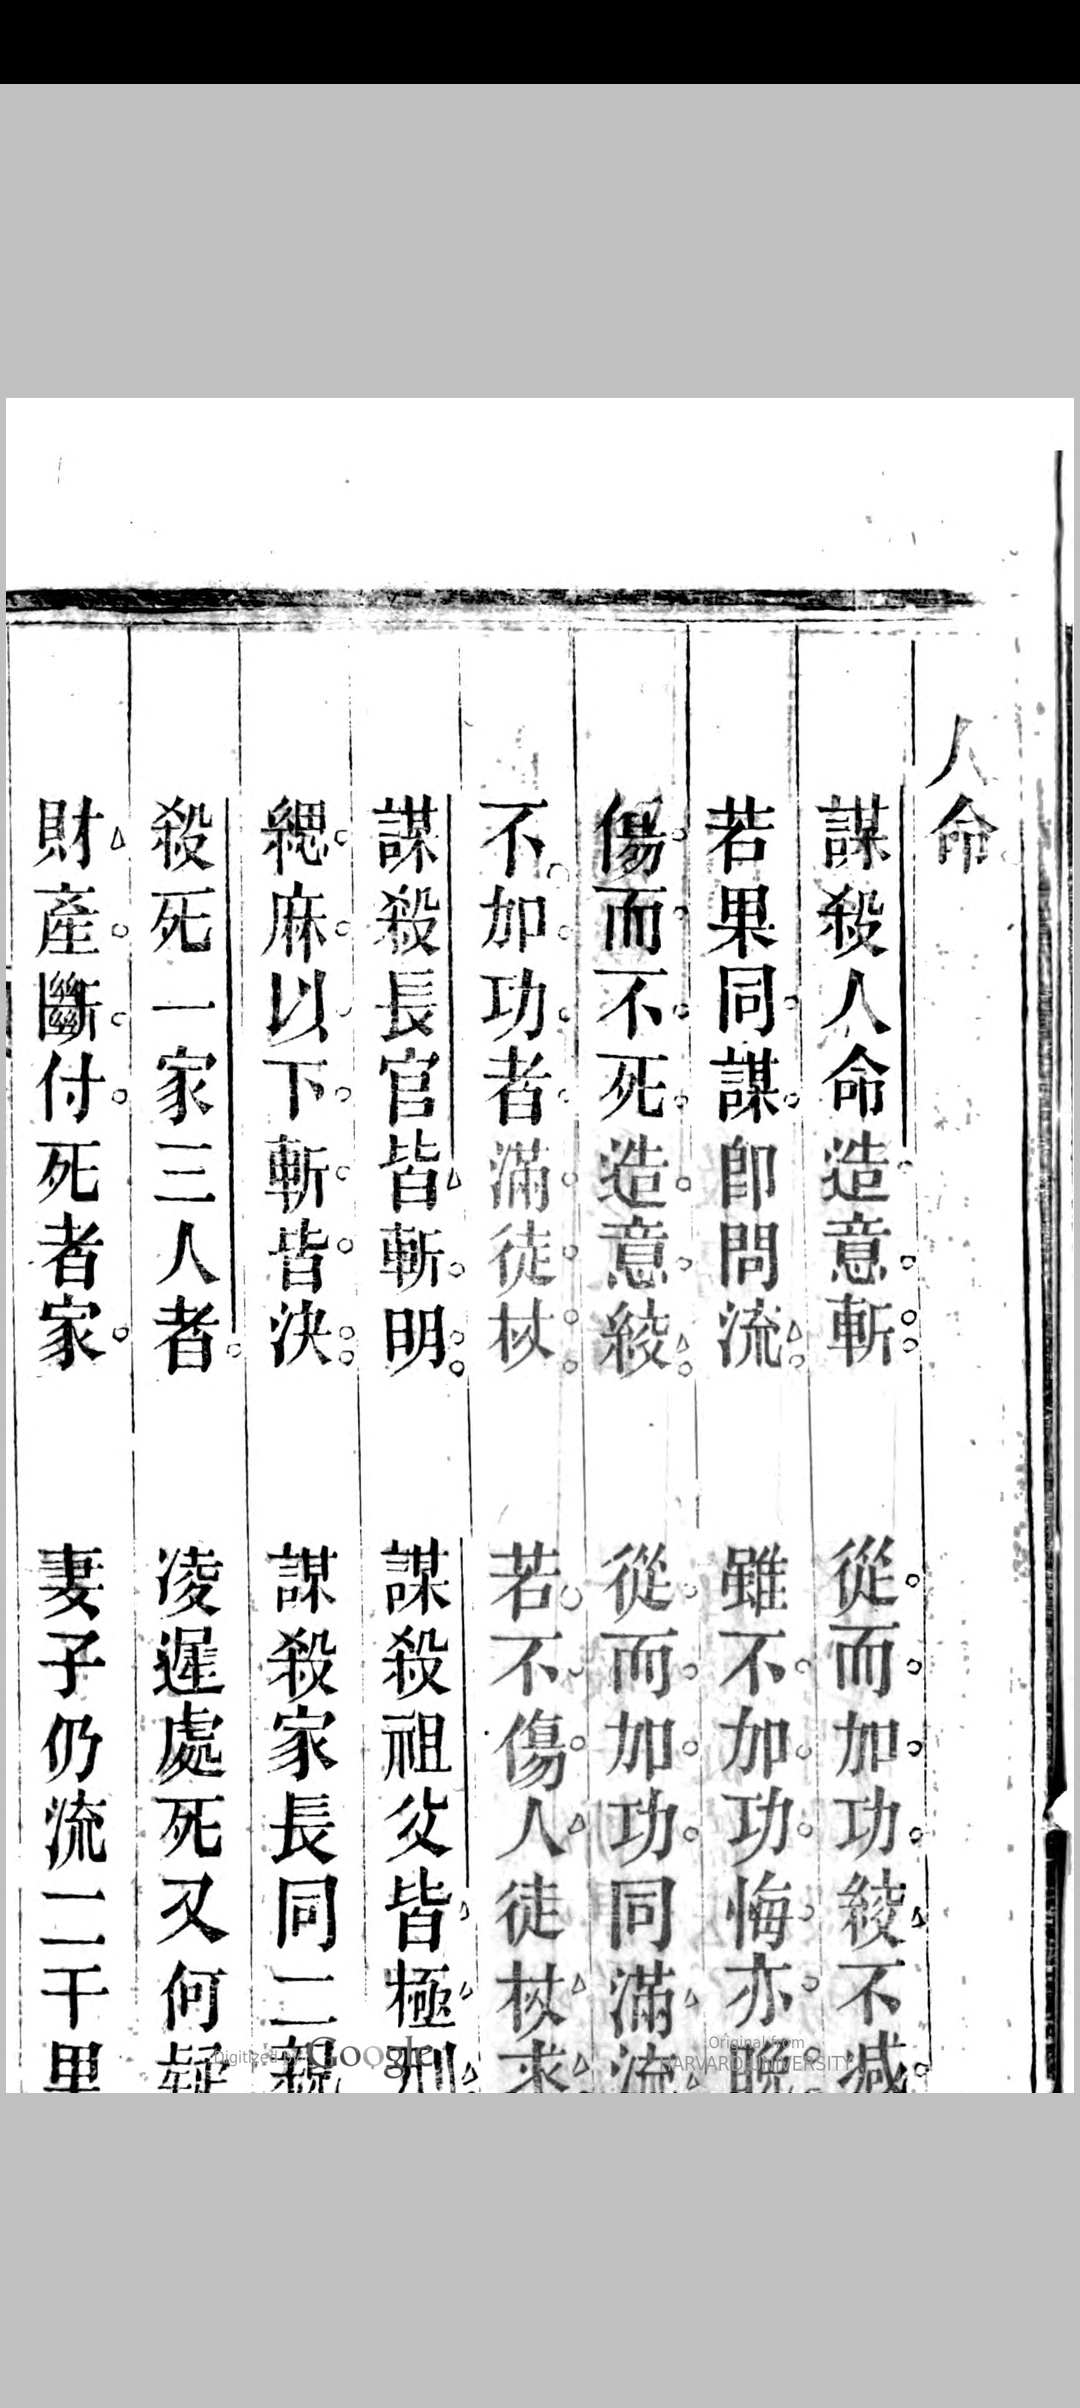 人命
謀殺人命造意斬 從而加功絞不減
若果同謀卽問流 雖不加功悔亦晚
傷而不死造意絞 從而加功同滿流
不加功者滿徒杖 若不傷人徒杖求
謀殺長官皆斬明 謀殺祖父皆極刑
緦麻以下斬皆決 謀殺家長同二親
殺死一家三人者 凌遲處死又何疑
財產斷付死者家 妻子仍流二千里
Digitized by Google
Original from
HARVARD UNIVERSITY